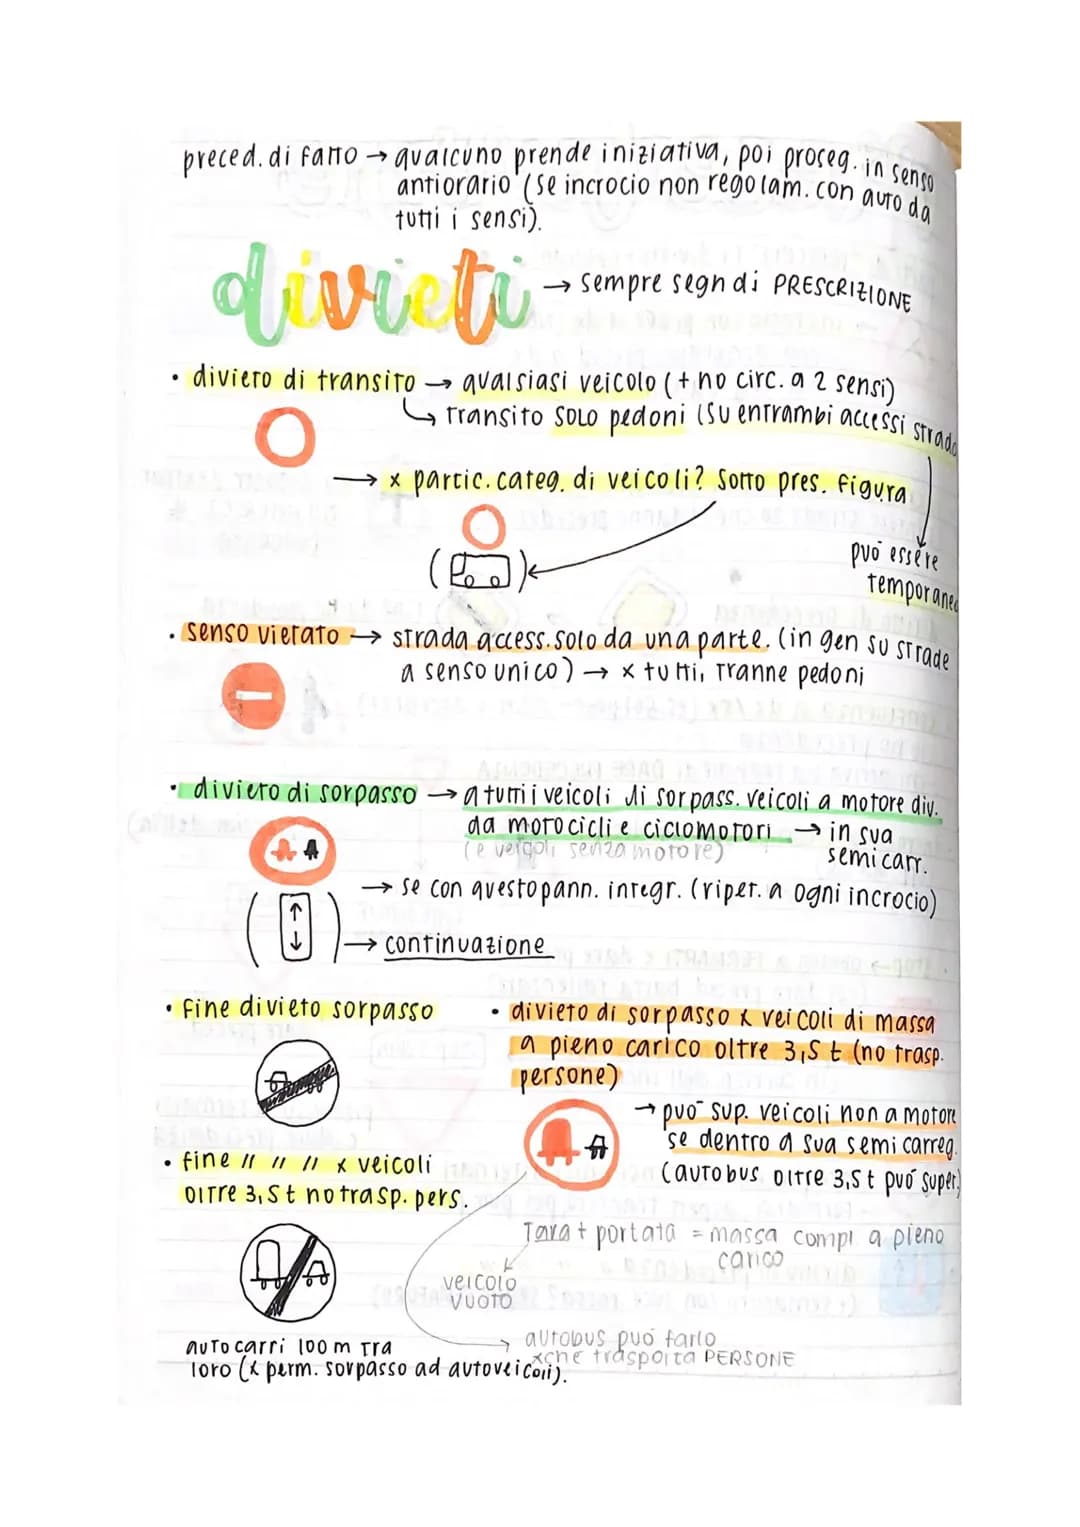 preced. di fatto → qualcuno prende iniziativa, poi proseg. in senso
antiorario (se incrocio non regolam. con auto da
tutti i sensi).
divieti → sempre segn di PRESCRIZIONE
• divieto di transito → qualsiasi veicolo (+ no circ. a 2 sensi)
↳ transito SOLO pedoni (su entrambi accessi strada
→ x partic. categ. di veicoli? Sotto pres. figura
può essere
temporaneo
• senso vietato → strada access. solo da una parte. (in gen su strade
a senso unico) → x tutti, tranne pedoni
• divieto di sorpasso → a tutti i veicoli di sorpass. veicoli a motore div.
da motocicli e ciclomotori → in sua
(e veicoli senza motore) semicarr.
→ se con questo pann. integr. (ripet. a ogni incrocio)
→ continuazione
• fine divieto sorpasso
• divieto di sorpasso x veicoli di massa
a pieno carico oltre 3,5 t (no trasp.
persone)
→ può sup. veicoli non a motore
se dentro a sua semicarreg.
(autobus oltre 3,5 t può super.)
• fine // // // x veicoli
oltre 3,5 t no trasp. pers.
Tara + portata = massa compl a pieno
carico
veicolo
VUOTO
autobus può farlo
xche trasporta PERSONE
autocarri 100 m tra
loro (x perm. sorpasso ad autoveicoli).